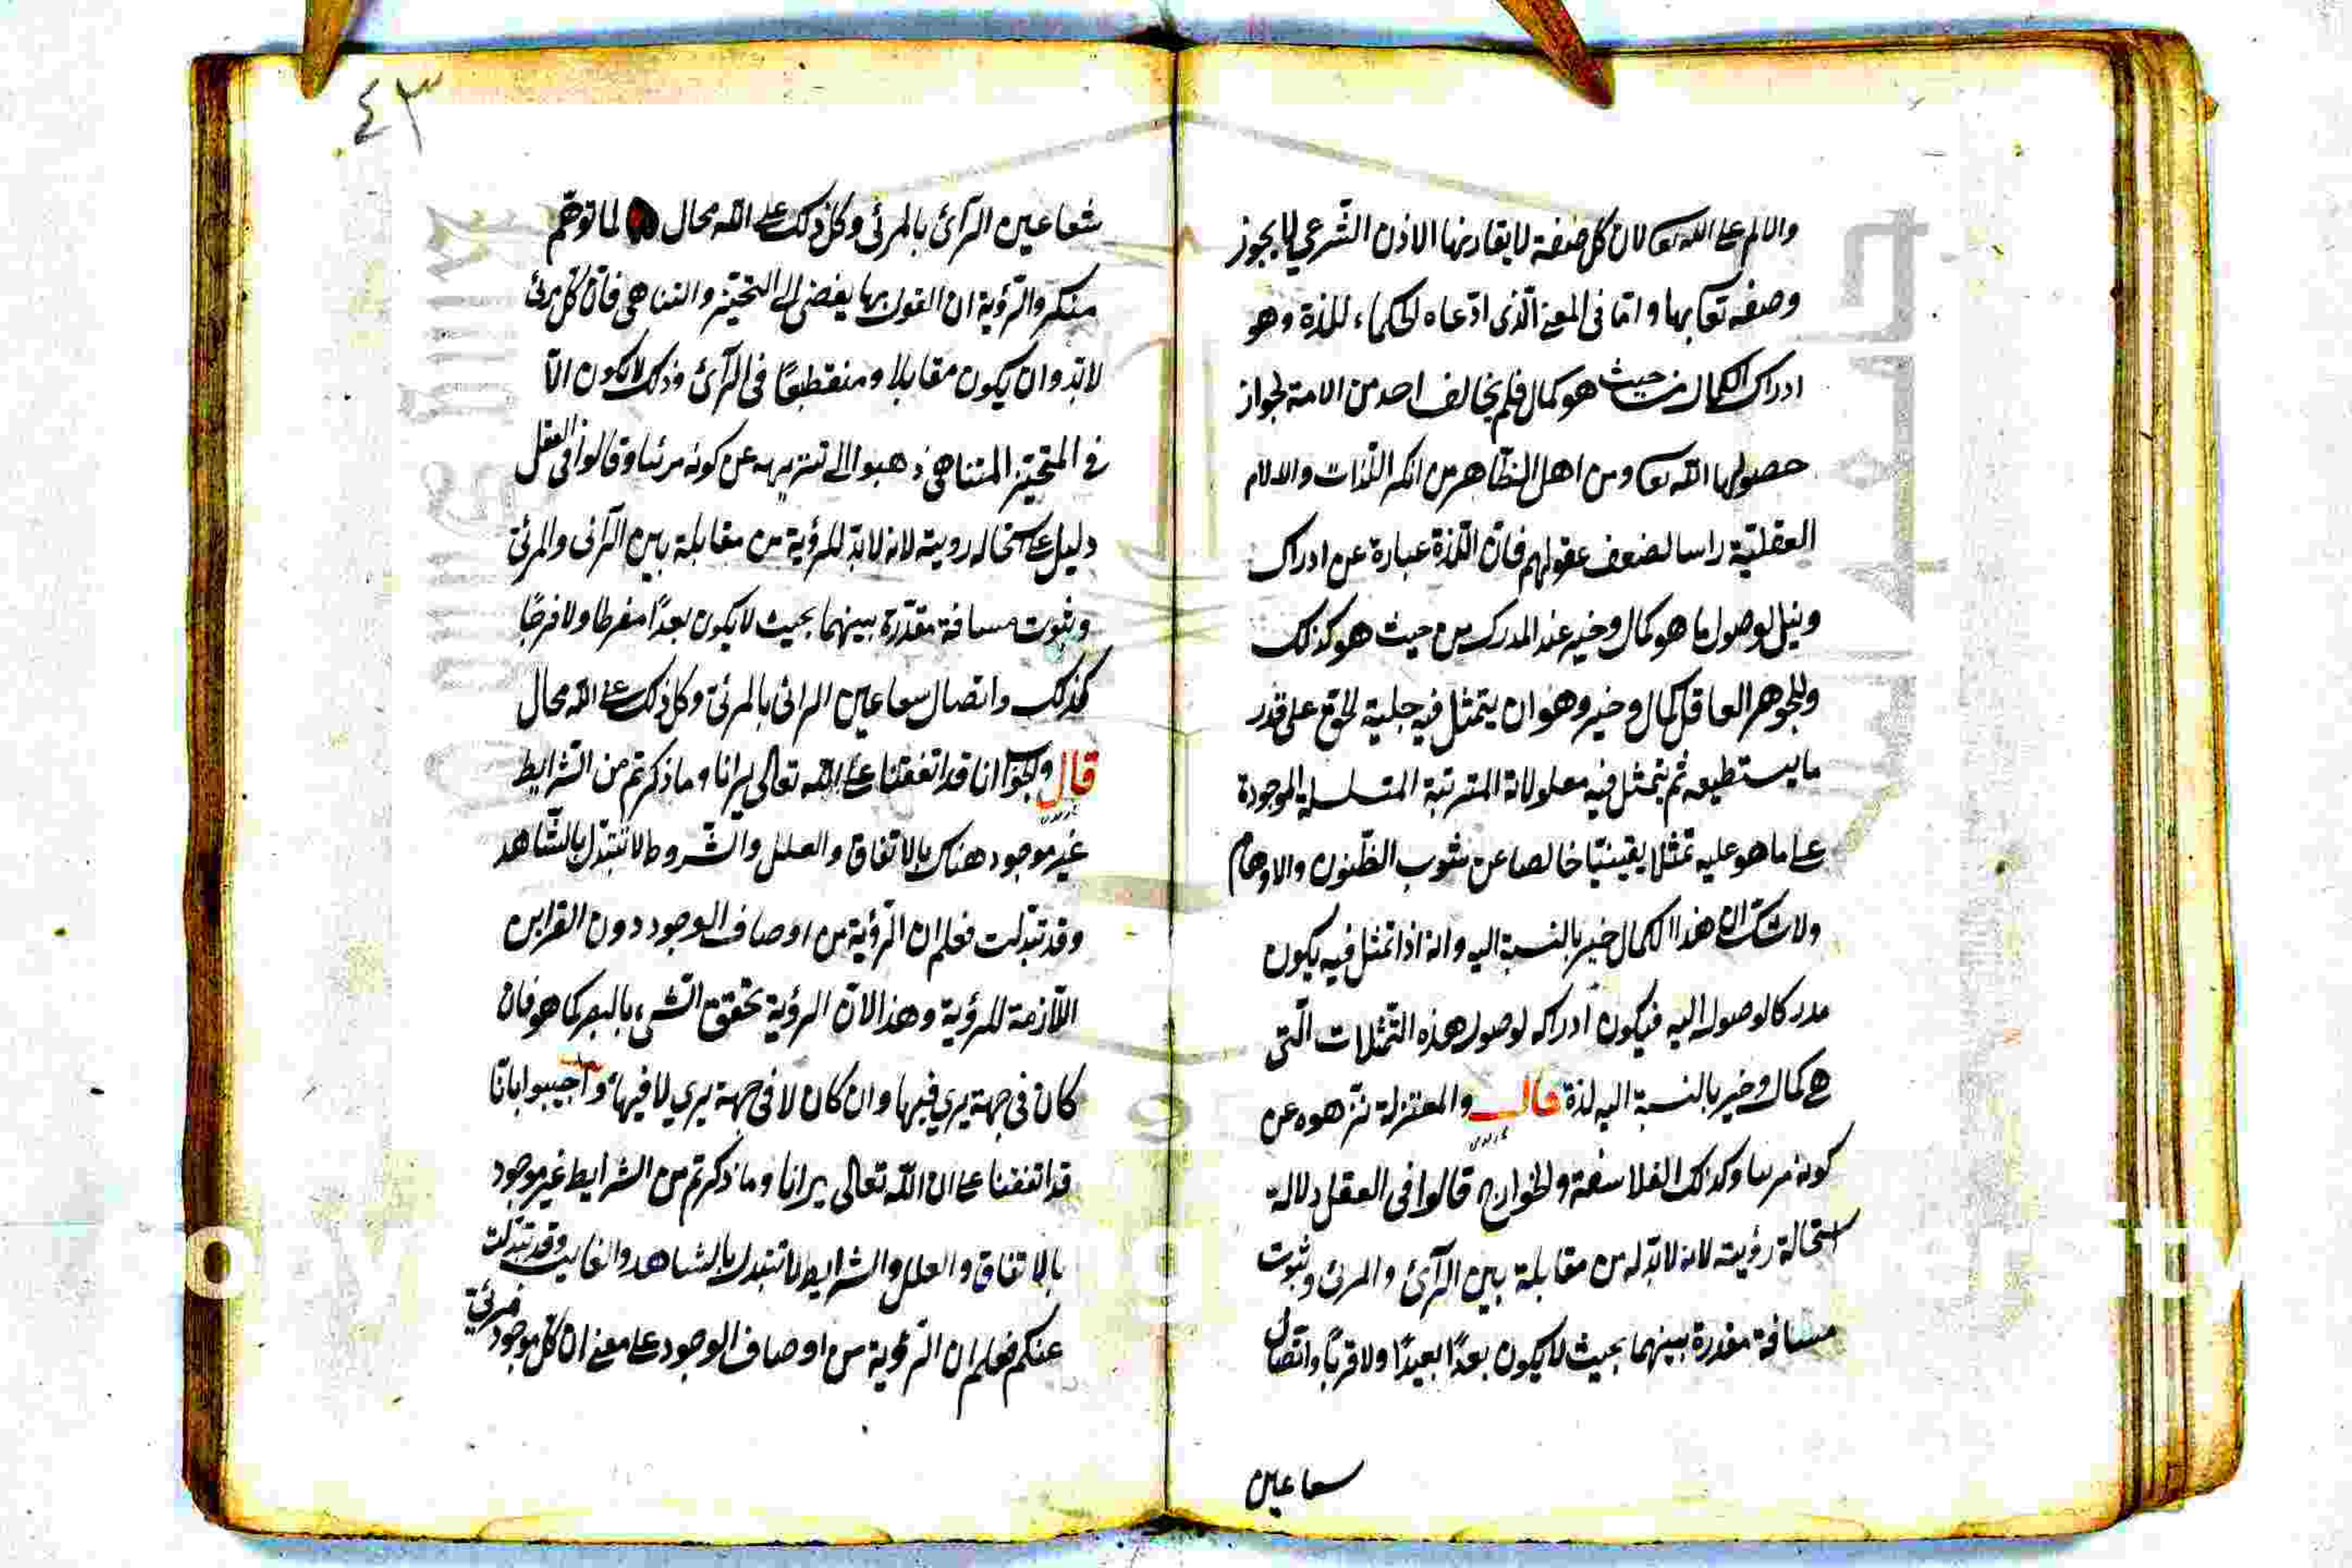 والالم على الله تعا لان كل صفة لا يقارنها الاذن الشرعي لا يجوز
وصفه تعا بها واما في المعنى الذي ادعاه الحكماء للذة وهو
ادراك الكمال من حيث هو كمال فلم يخالف احد من الامة لجواز
حصولها الله تعا ومن اهل الظاهر من انكر اللذات والالام
العقلية راسا لضعف عقولهم فان اللذة عبارة عن ادراك
ونيل لوصول ما هو كمال وخير عند المدرك من حيث هو كذلك
وللجوهر العاقل كمال وخير وهو ان يتمثل فيه جلية الحق على قدر
ما يستطيعه ثم يتمثل فيه معلولاته المترتبة المتسلسلة الموجودة
على ما هو عليه تمثلا يقينيا خالصا عن شوب الظنون والاوهام
ولا شك ان هذا الكمال خير بالنسبة اليه وانه اذا تمثل فيه يكون
مدركا لوصوله اليه فيكون ادراكه لوصول هذه التمثلات التى
هي كمال وخير بالنسبة اليه لذة قال والمعتزلة نزهوه عن
كونه مرئيا وكذلك الفلاسفة والخوارج قالوا فى العقل دلالة
استحالة رؤيته لانه لابد له من مقابلة بين الرآئ والمرئ وثبوت
مسافة مقدرة بينهما بحيث لا يكون بعدًا بعيدًا ولا قربًا واتصال
سعاعين
٤٣
شعاعين الرآئ بالمرئى وكل ذلك على الله محال لما توهّم
منكروا الرؤية ان القول بها يفضى الى التحيّز والتناهى فان كل مرئ
لابد وان يكون مقابلا ومنقطبعًا فى الرآئ وذلك لا يكون الّا
فى المتحيّز المتناهى ذهبوا الى تنزيهه عن كونه مرئيا وقالوا فى العقل
دليل على استحاله رويته لانه لابد للرؤية من مقابلة بين الرآئى والمرئى
وثبوت مسافة مقدّرة بينهما بحيث لا يكون بعدًا مفرطا ولا قرجًا
كذلك واتصال سعاعين الرائى بالمرئى وكل ذلك على الله محال
قال والجواب انا قد اتفقنا على الله تعالى يرانا وما ذكرتم من الشرايط
غير موجود هناك بالاتفاق والعلل والشّروط لا تتبدّل بالشّاهد
وقد تبدلت فعلم ان الرؤية من اوصاف الوجود دون القراين
اللّازمة للرؤية وهذا لانّ الرؤية تحقق الشّىء بالبصر كما هو فان
كان فى جهة يري فيها وان كان لا فى جهة يري لا فيها واجيبوا بانّا
قد اتفقنا على ان الله تعالى يرانا وما ذكرتم من الشرايط غير موجود
بالاتفاق والعلل والشرايط لا تتبدل بالشاهد والغايب وقد تبدّلت
عنكم فعلم ان الرّؤية من اوصاف الوجود على معنى ان كلّ موجود مرئيّ